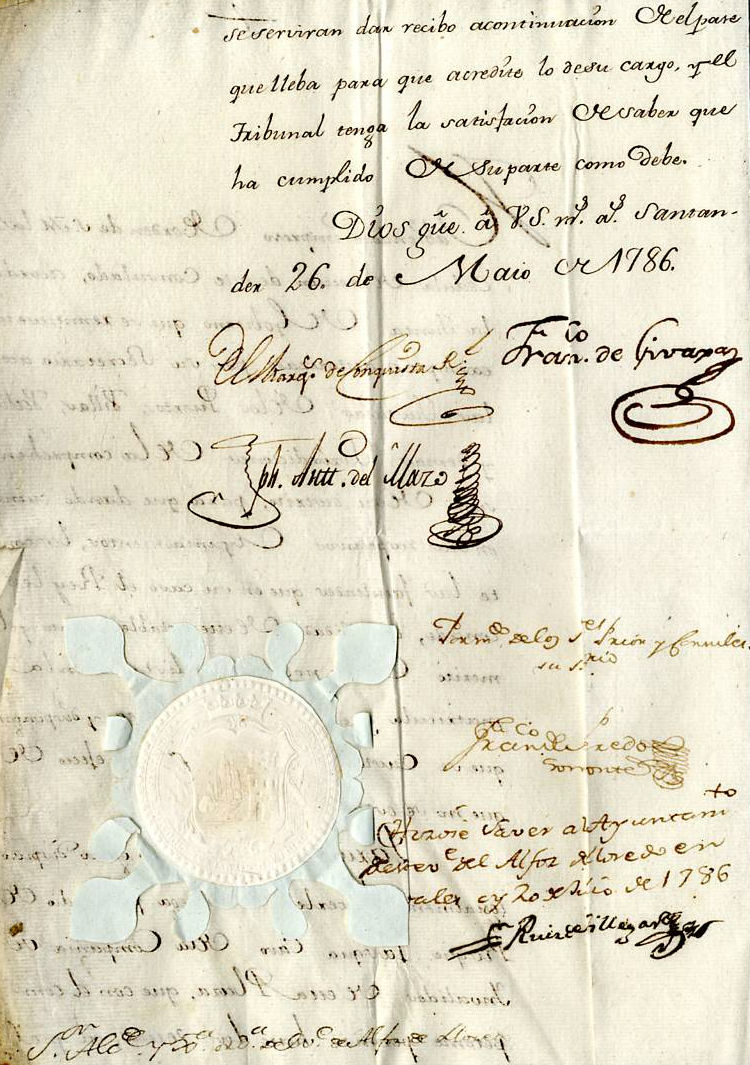 se serviran dar recibo acontinuacion del parte
que lleba para que acredite lo desu cargo, y el
Tribunal tenga la satisfacion de saber que
ha cumplido de su parte como debe.
Dios gũe. â V.S. m.s a.s Santan-
der 26. de Maio de 1786.
El Marq.s de Conquista R.l
Fran.co de Givaxa
Jph. Antt. del Mazo
Por m.do de los S.res Prior y Consules
su S.rio
Fran.co de
Hizose saver al Ayuntam.to
del Alfoz de Lloredo en
oy 20 de Julio de 1786
Ruiz de Villegas
S.or Alc.de y de Alfoz de Lloredo